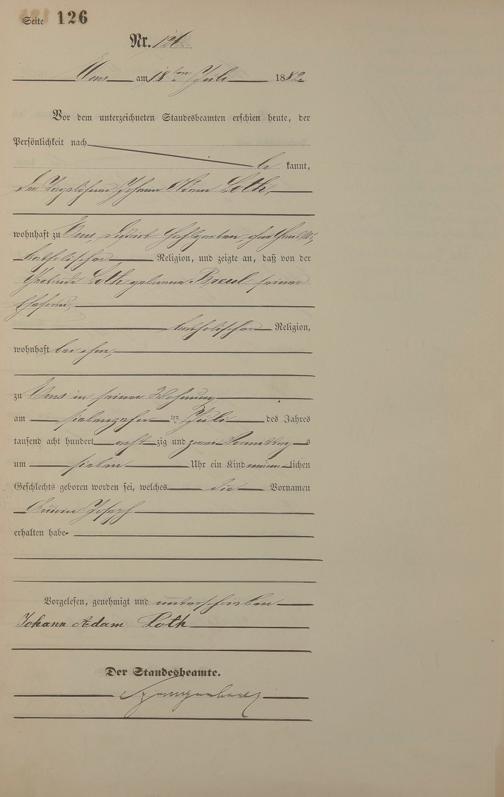 Seite 126
Nr. 126
Ems am 18ten Juli 1882
Vor dem unterzeichneten Standesbeamten erschien heute, der
Persönlichkeit nach
be kannt,
der Johann Adam Loth,
wohnhaft zu Ems,
katholischer Religion, und zeigte an, daß von der
Loth geborene seiner
Ehefrau,
katholischer Religion,
wohnhaft bei ihm,
zu Ems in seiner Wohnung
am siebenzehn ten Juli des Jahres
tausend acht hundert acht zig und zwei Vormittags
um sieben Uhr ein Kind männlichen
Geschlechts geboren worden sei, welches die Vornamen
Joseph
erhalten habe
Vorgelesen, genehmigt und unterschrieben
Johann Adam Loth
Der Standesbeamte.